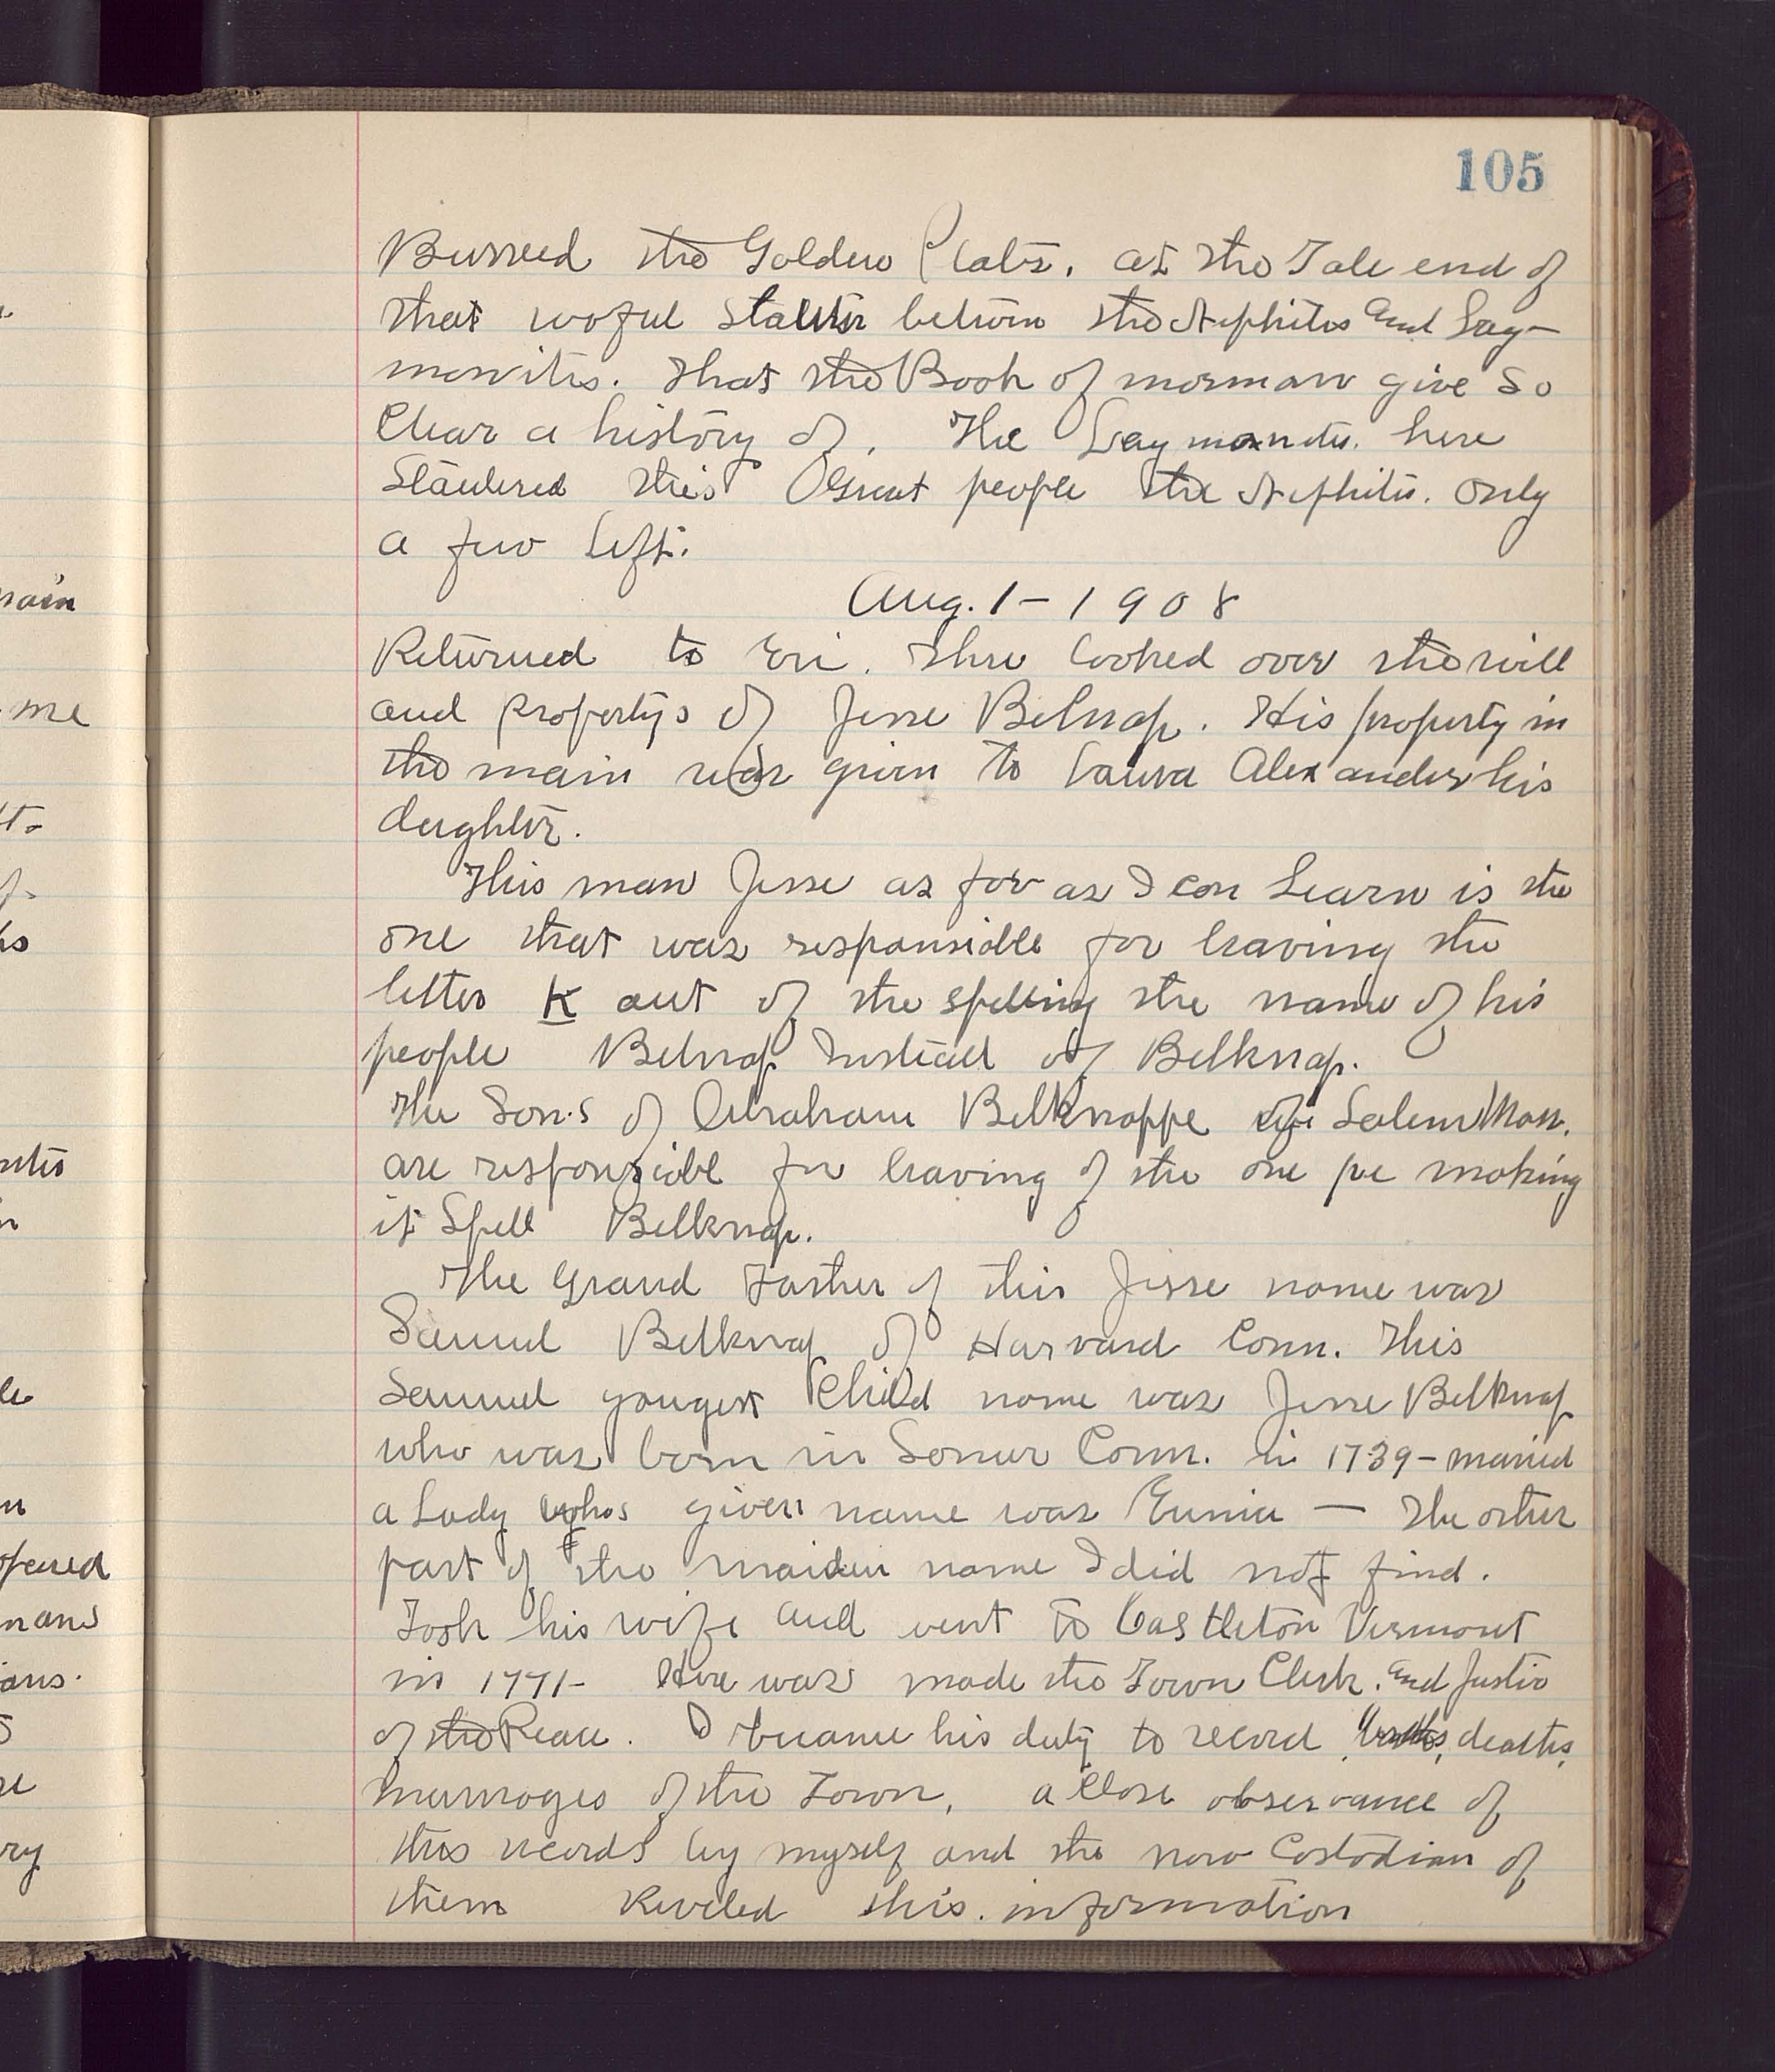 105
Burreed the Golden Plats. at the Tale end of
that woful Slauter betwen the Nephites and Lay-
monites. That the Book of mormon give so
Clear a history of. The Laymonites. here
Slautered this Great people the Nephites. only
a few Left.
Aug. 1 - 1908
Returned to Eri. Then looked over the will
and propertys of Jesse Belnap. His property in
the main was given to Laura Alexander his
dughter.
This man Jesse as far as I con Learn is the
one that was responsidle for leaving the
letter K out of the spelling the name of his
people Belnap Insticed of Belknap.
The Son.s of Abraham Belknappe of Salem Mass.
are responsible for leaving of the one pe making
it Spell Belknap.
The Grand Father of this Jesse name was
Samuel Belknap of Harvard Conn. This
Samuel youngest Child name was Jesse Belknap
who was born in Conn. in 1739 - maried
a Lady whos given name was Eunice — The other
part of the maiden name I did not find.
Took his wife and went to Castleton Vermont
in 1771 - Here was made the Town Clerk. and Justic
of the Peace. It became his duty to record births, deaths,
marrages of the Town, a Close observance of
this records by myself and the now Costodian of
them Reveled this. information
main
me
ofered
mans
ians.
ry